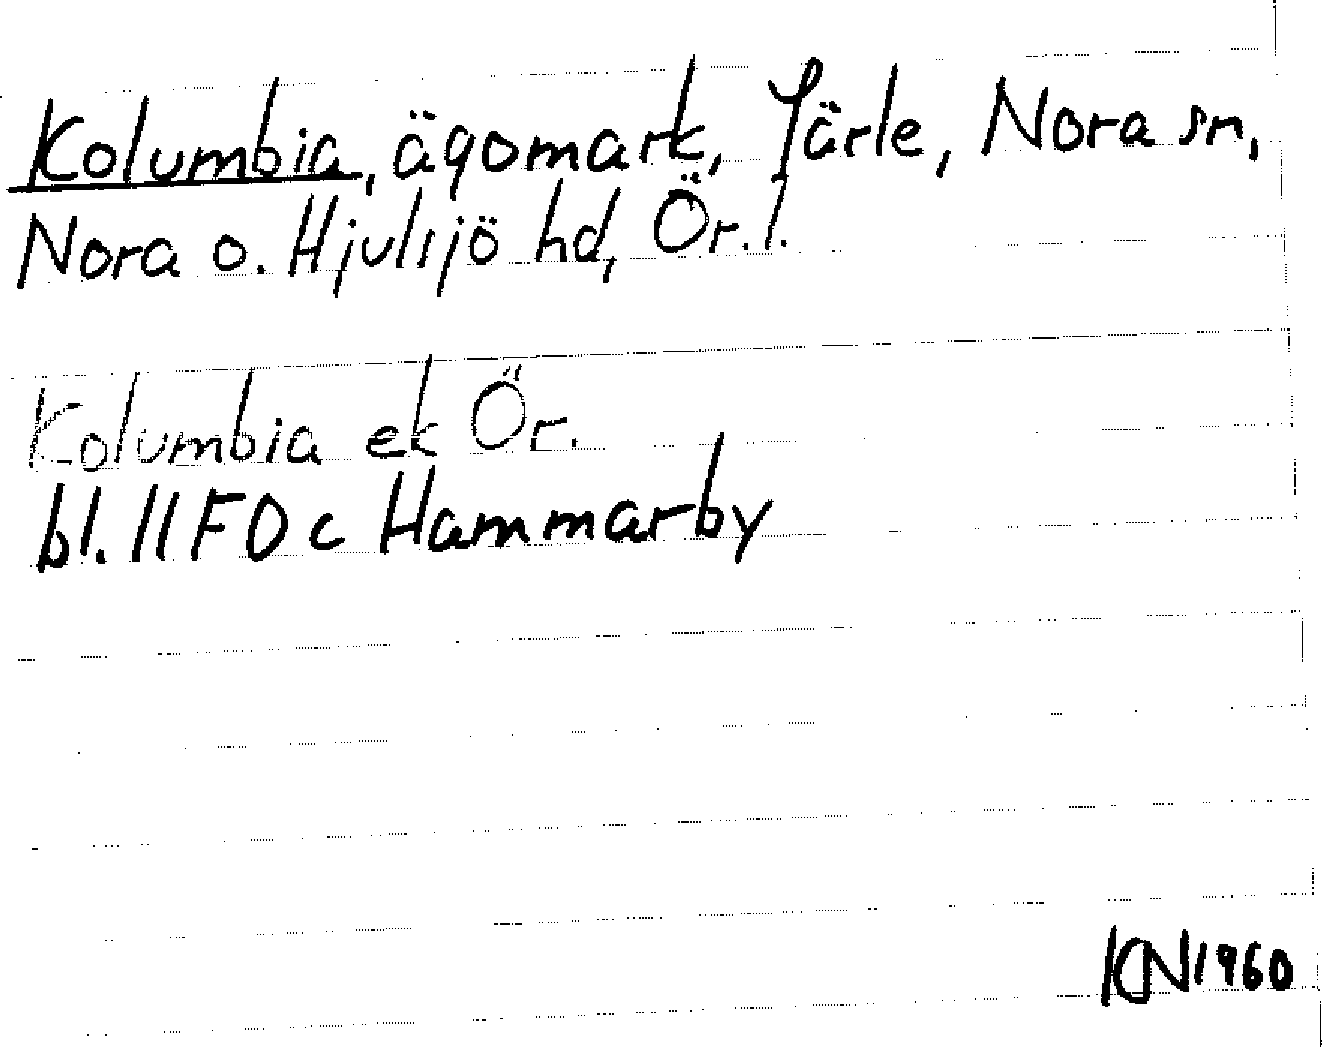 Kolumbia, ägomark, Järle, Nora sn,
Nora o. Hjulsjö hd, Ör. l.
Kolumbia ek Ör.
bl. 11F0c Hammarby
KN 1960